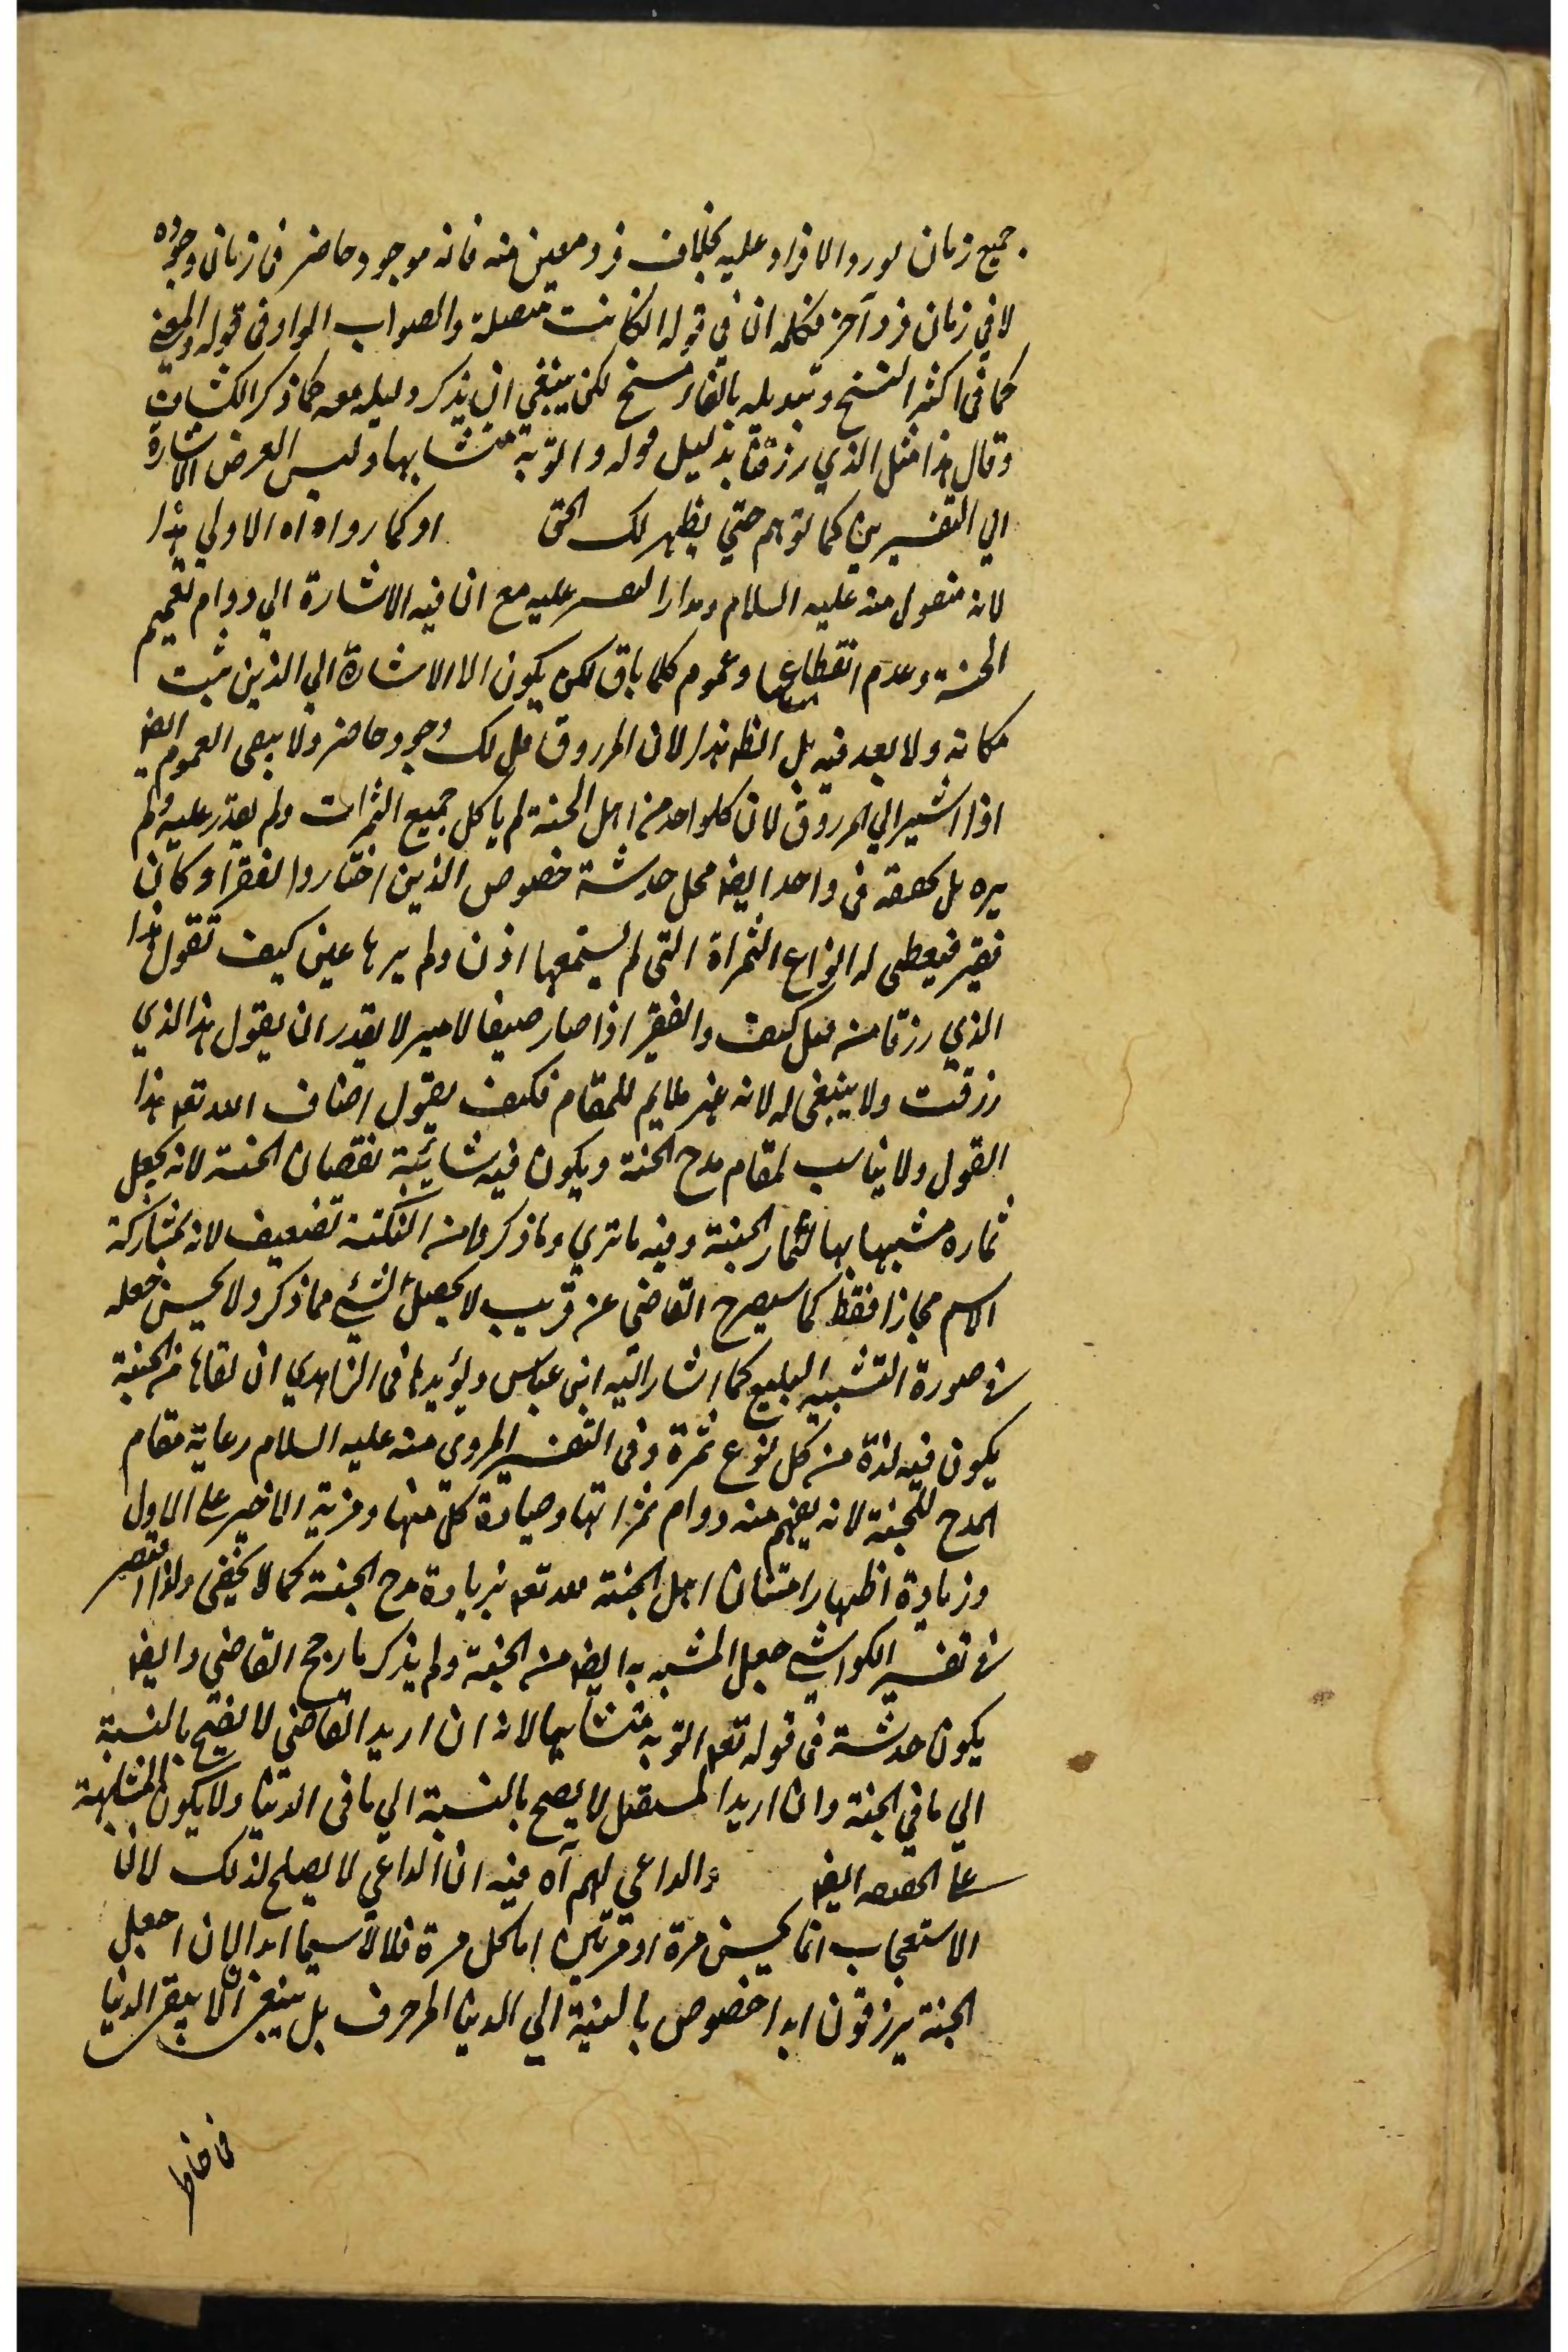 جميع زمان لورود الافراد عليه بخلاف فرد معين منه فانه موجود حاضر فى زمان وجوده
لا في زمان فرد آخر فكلمة ان في قوله الكانت متصلة والصواب الواو فى قوله والمعنى
كما فى اكثر النسخ وتبديله بالفاء مسخ لكن ينبغي ان يذكر دليله معه كما ذكر الكشاف
وقال هذا مثل الذي رزقنا بدليل قوله واتوا به متشابها وليس الغرض الاشارة
الي التفسيرين كما توهم حتي يظهر لك الحق او كما رواه اه الاولي هذا
لانه منقول منه عليه السلام ومدار التفسير عليه مع ان فيه الاشارة الي دوام نعيم
الجنة وعدم انقطاعها وعموم كلما باق لكن يكون الاشارة الي الذين ثبت
مكانه ولا بعد فيه بل الظ هذا لان المرزوق قبل لك وجود حاضر ولا يبقى العموم ايضا
اذا اشير الي المرزوق لان كلواحد من اهل الجنة لم ياكل جميع الثمرات ولم يقدر عليه ولم
يره بل تحققه فى واحد ايضا محل خدشة خصوص الذين اختاروا الفقر وكان
فقير فيعطى له انواع الثمراة التى لم يستمعها اذن ولم يرها عين كيف تقول هذا
الذي رزقنا من قبل كيف والفقير اذا صار ضيفا لامير لا يقدر ان يقول هذا الذي
رزقت ولا ينبغى له لانه غير ملايم للمقام فكيف يقول اضياف الله تعه هذا
القول ولا يناسب لمقام مدح الجنة ويكون فيه شائبة نقصان الجنة لانه يجعل
ثماره مشبها بها لثمار الجنة وفيه ما تري وما ذكر من النكتة تضعيف لانه بمشاركة
الاسم مجازا فقط كما سيصرح القاضي عن قريب لا يحصل الشيء مما ذكر ولا يحسن جعله
فى صورة التشبيه البليغ كما اشار اليه ابن عباس ويؤيد ما فى الزاهدي ان لقاها فى الجنة
يكون فيه لذة من كل نوع ثمرة وفى التفسير المروي منه عليه السلام رعاية مقام
المدح للجنة لانه يفهم منه دوام ثمراتها وصيادة كل منها ومزية الاخير على الاول
وزيادة اظهار امتنان اهل الجنة لله تعه بزيادة مدح الجنة كما لا يخفى ولذا اقتصر
فى تفسير الكواشي جعل المشبه به ايضا من الجنة ولم يذكر ما رجح القاضي وايضا
يكون خدشة فى قوله تعه اتوا به متشابها لانه ان اريد الماضي لا يصح بالنسبة
الي ما في الجنة وان اريد المستقبل لا يصح بالنسبة الي ما فى الدنيا ولا يكون المشابهة
على الحقيقة ايضا والداعي لهم آه فيه ان الداعي لا يصلح لذلك لان
الاستعجاب انما يحسن مرة او مرتين اما كل مرة فلا لاسيما ابدا لان اهل
الجنة يرزقون ابدا خصوص بالنسبة الي الدنيا المزخرف بل ينبغى ان لا يبقى الدنيا